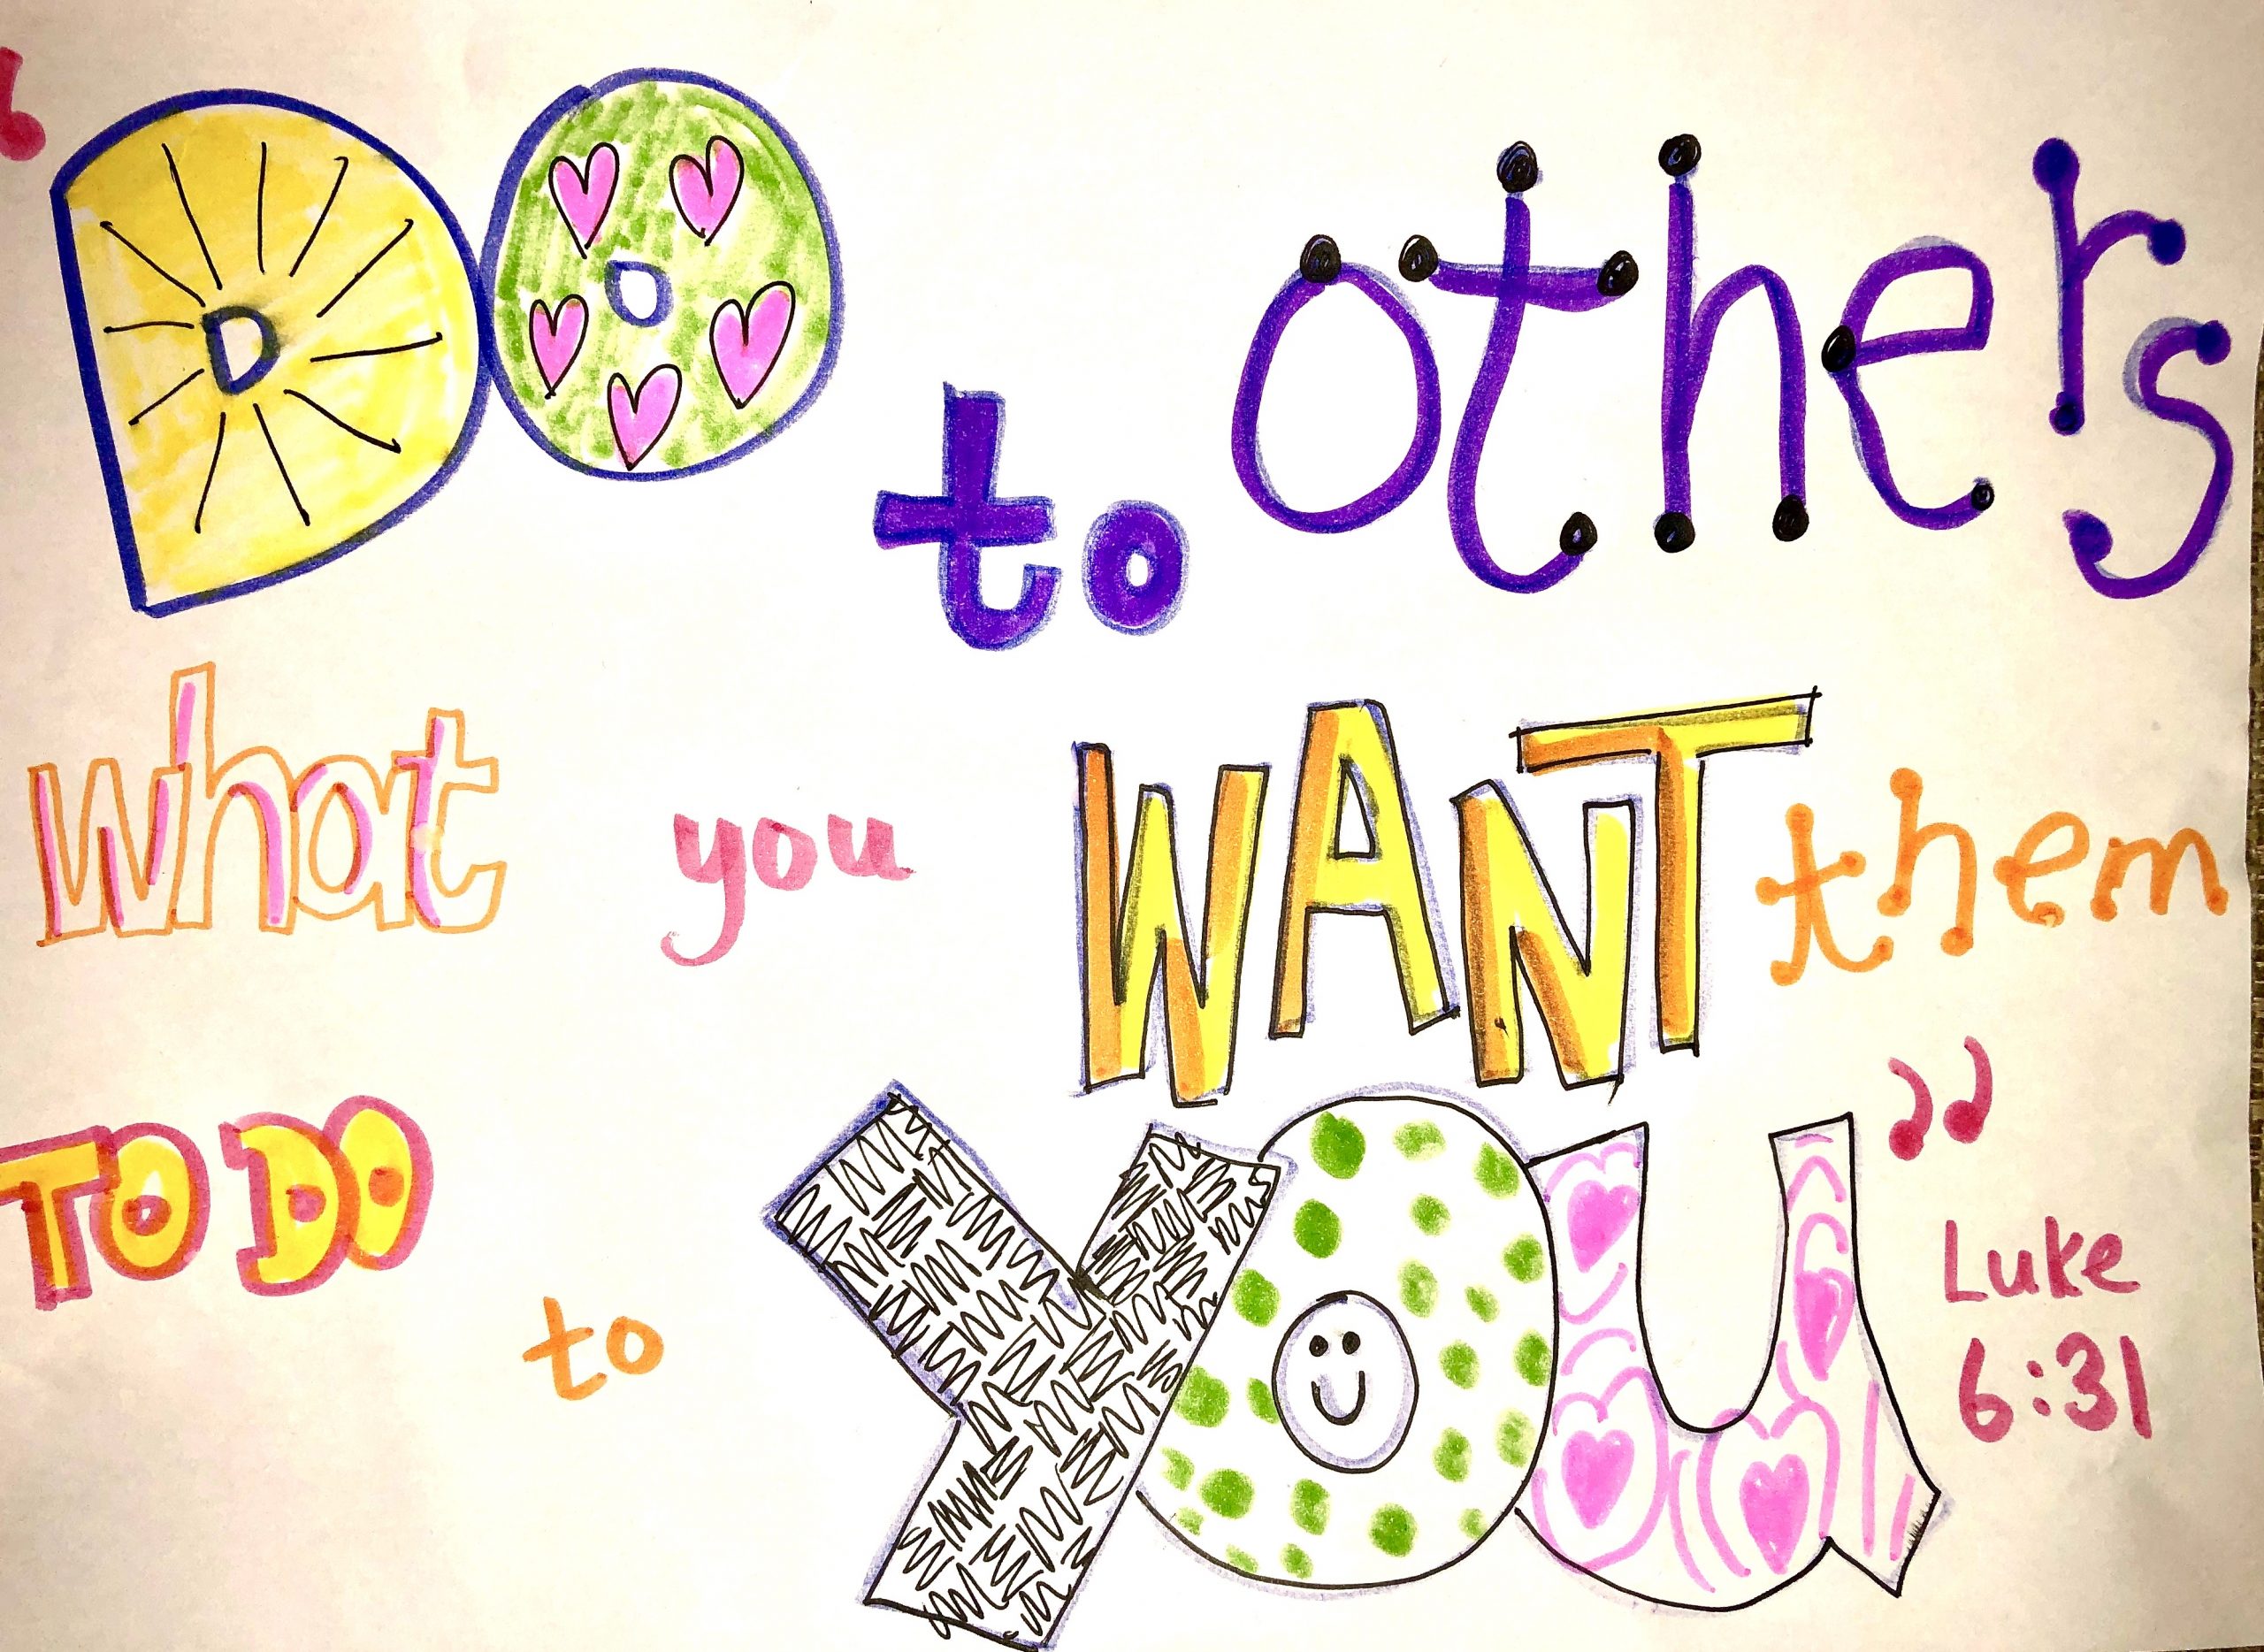 “DO to others
what you WANT them
TO DO to YOU”
Luke
6:31